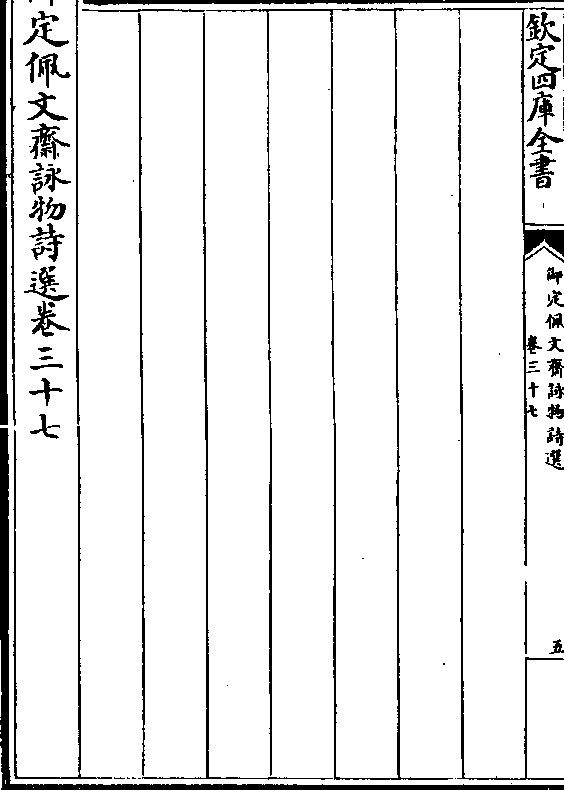 欽定四庫全書
御定佩文齋詠物詩選
卷三十七
五
御定佩文齋詠物詩選卷三十七